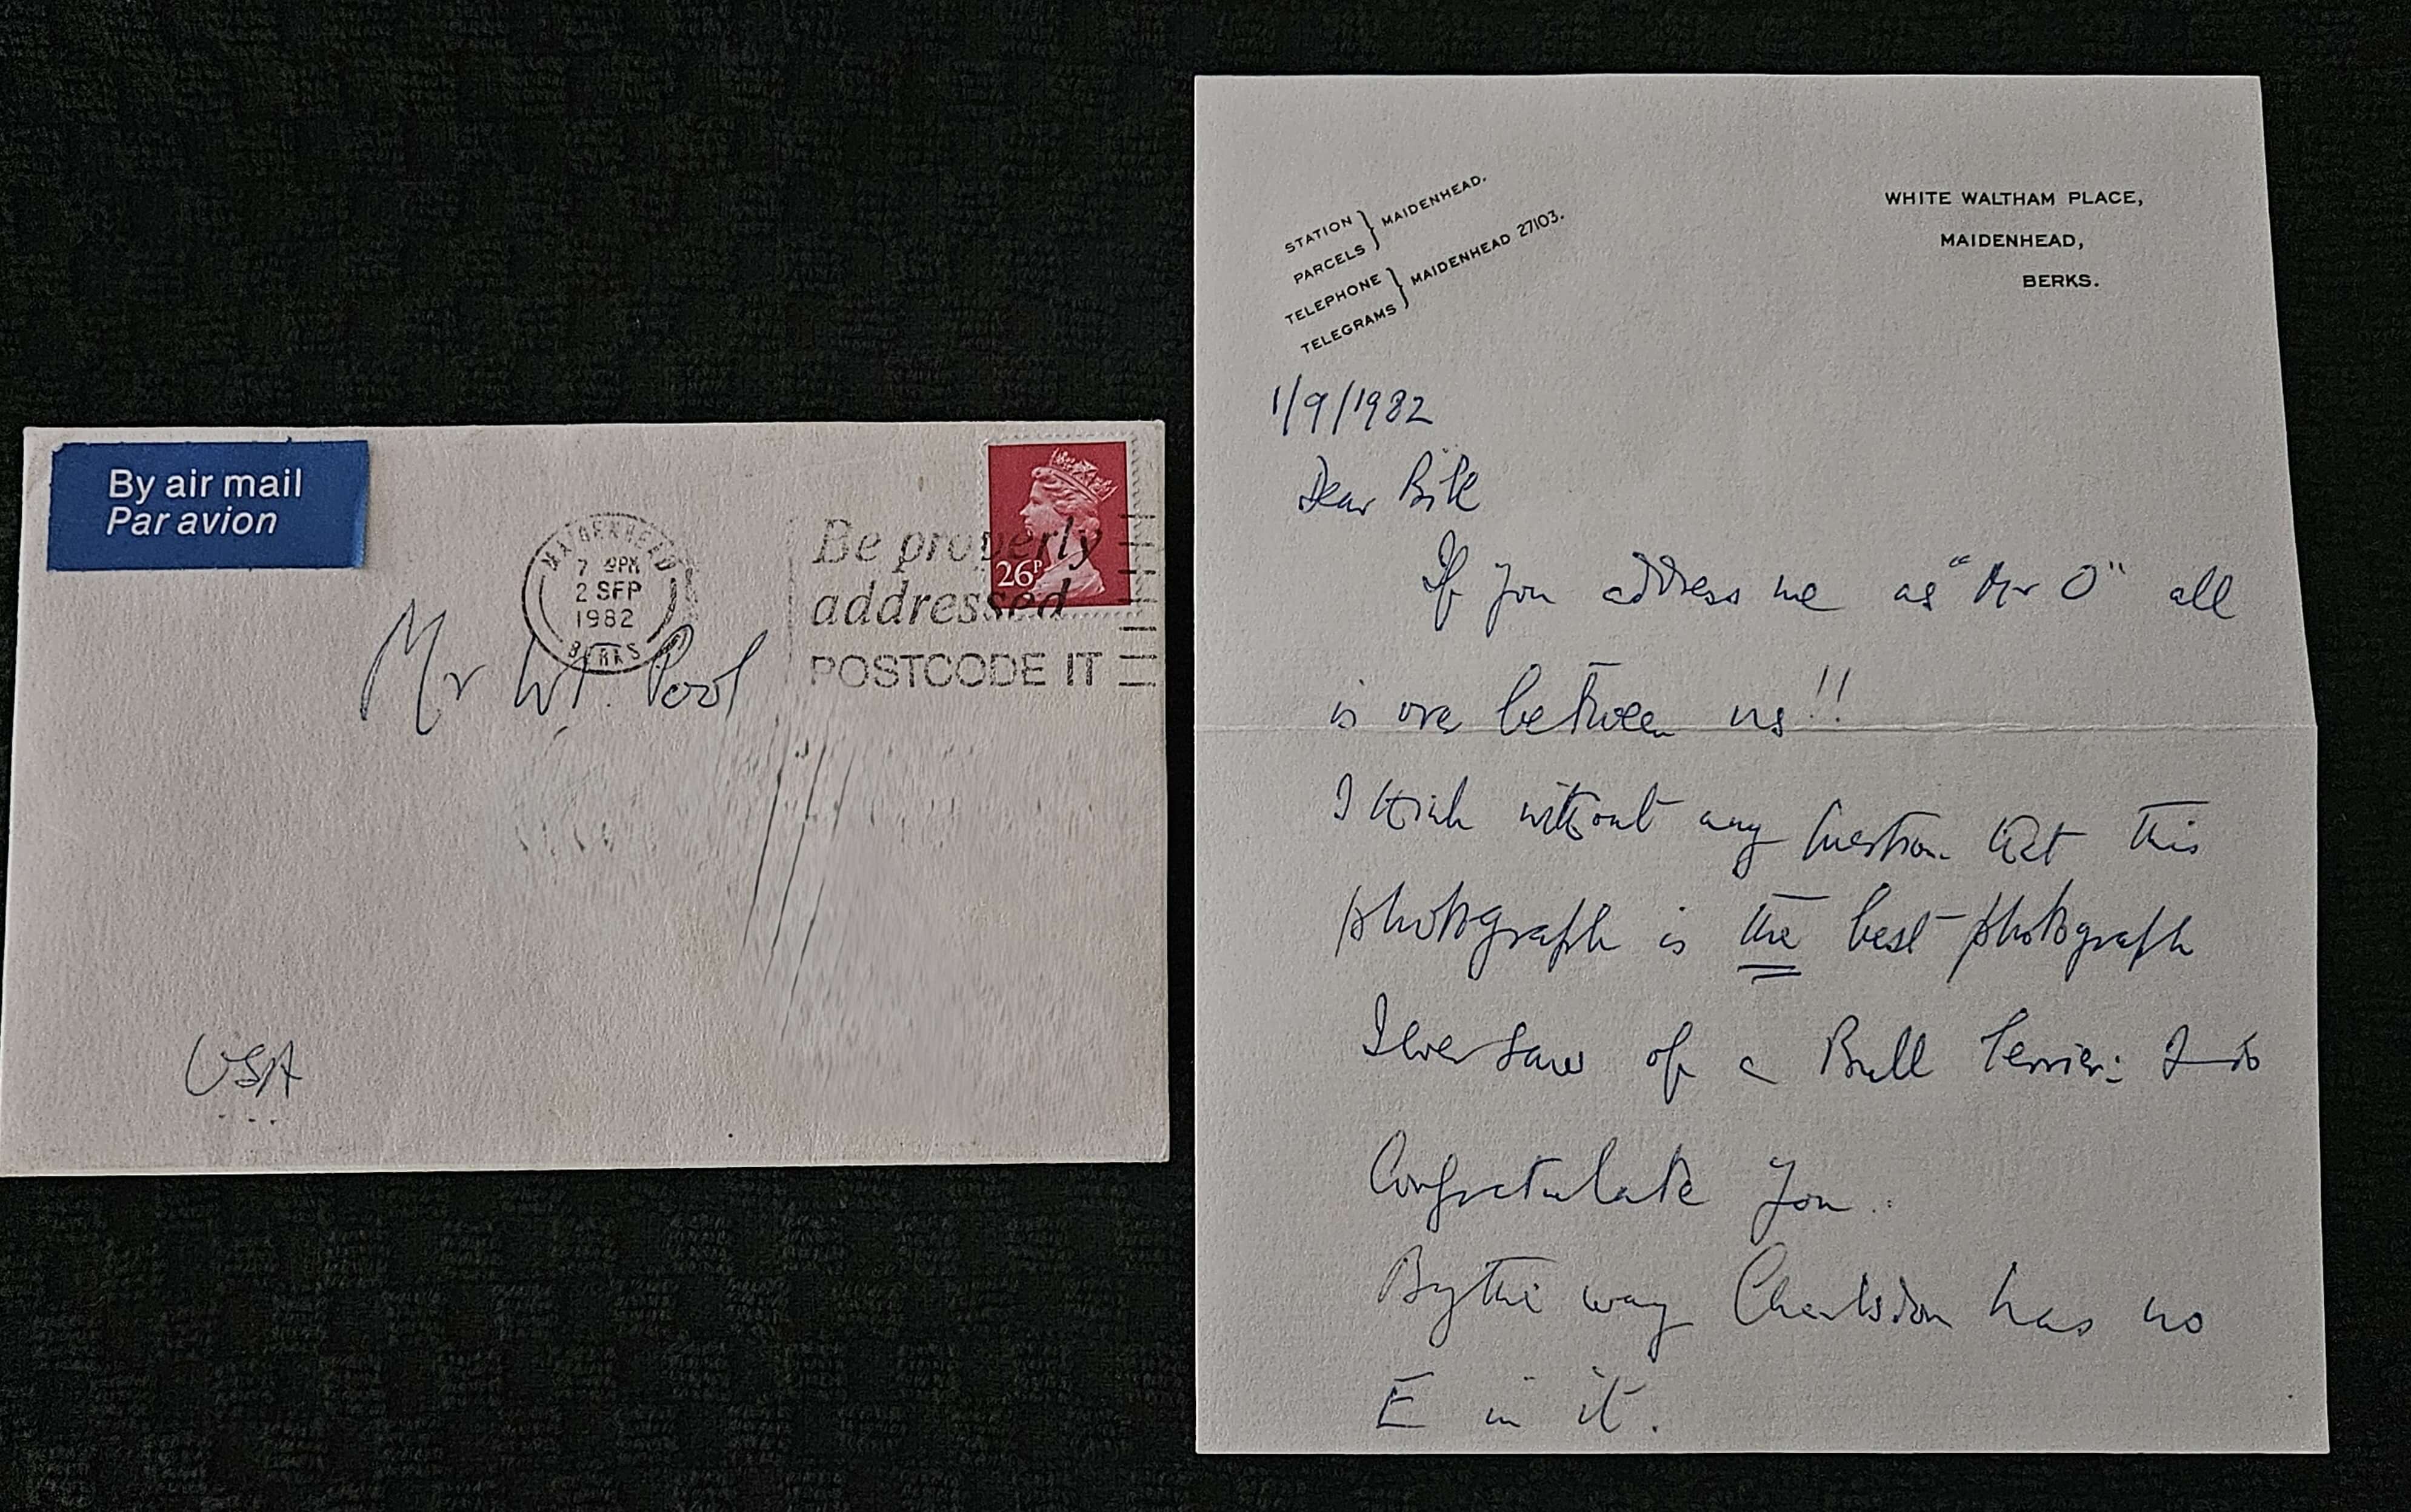 By air mail
Par avion
MAIDENHEAD
7 PM
2 SEP
1982
BERKS
Be properly
addressed
POSTCODE IT
26P
Mr W. Pool
USA
STATION } MAIDENHEAD.
PARCELS
TELEPHONE } MAIDENHEAD 27103.
TELEGRAMS
WHITE WALTHAM PLACE,
MAIDENHEAD,
BERKS.
1/9/1982
Dear Bill
If you address me as "Mr O" all
is over between us!!
I think without any question that this
photograph is the best photograph
I ever saw of a Bull Terrier: I do
Congratulate you.
By the way has no
E in it.